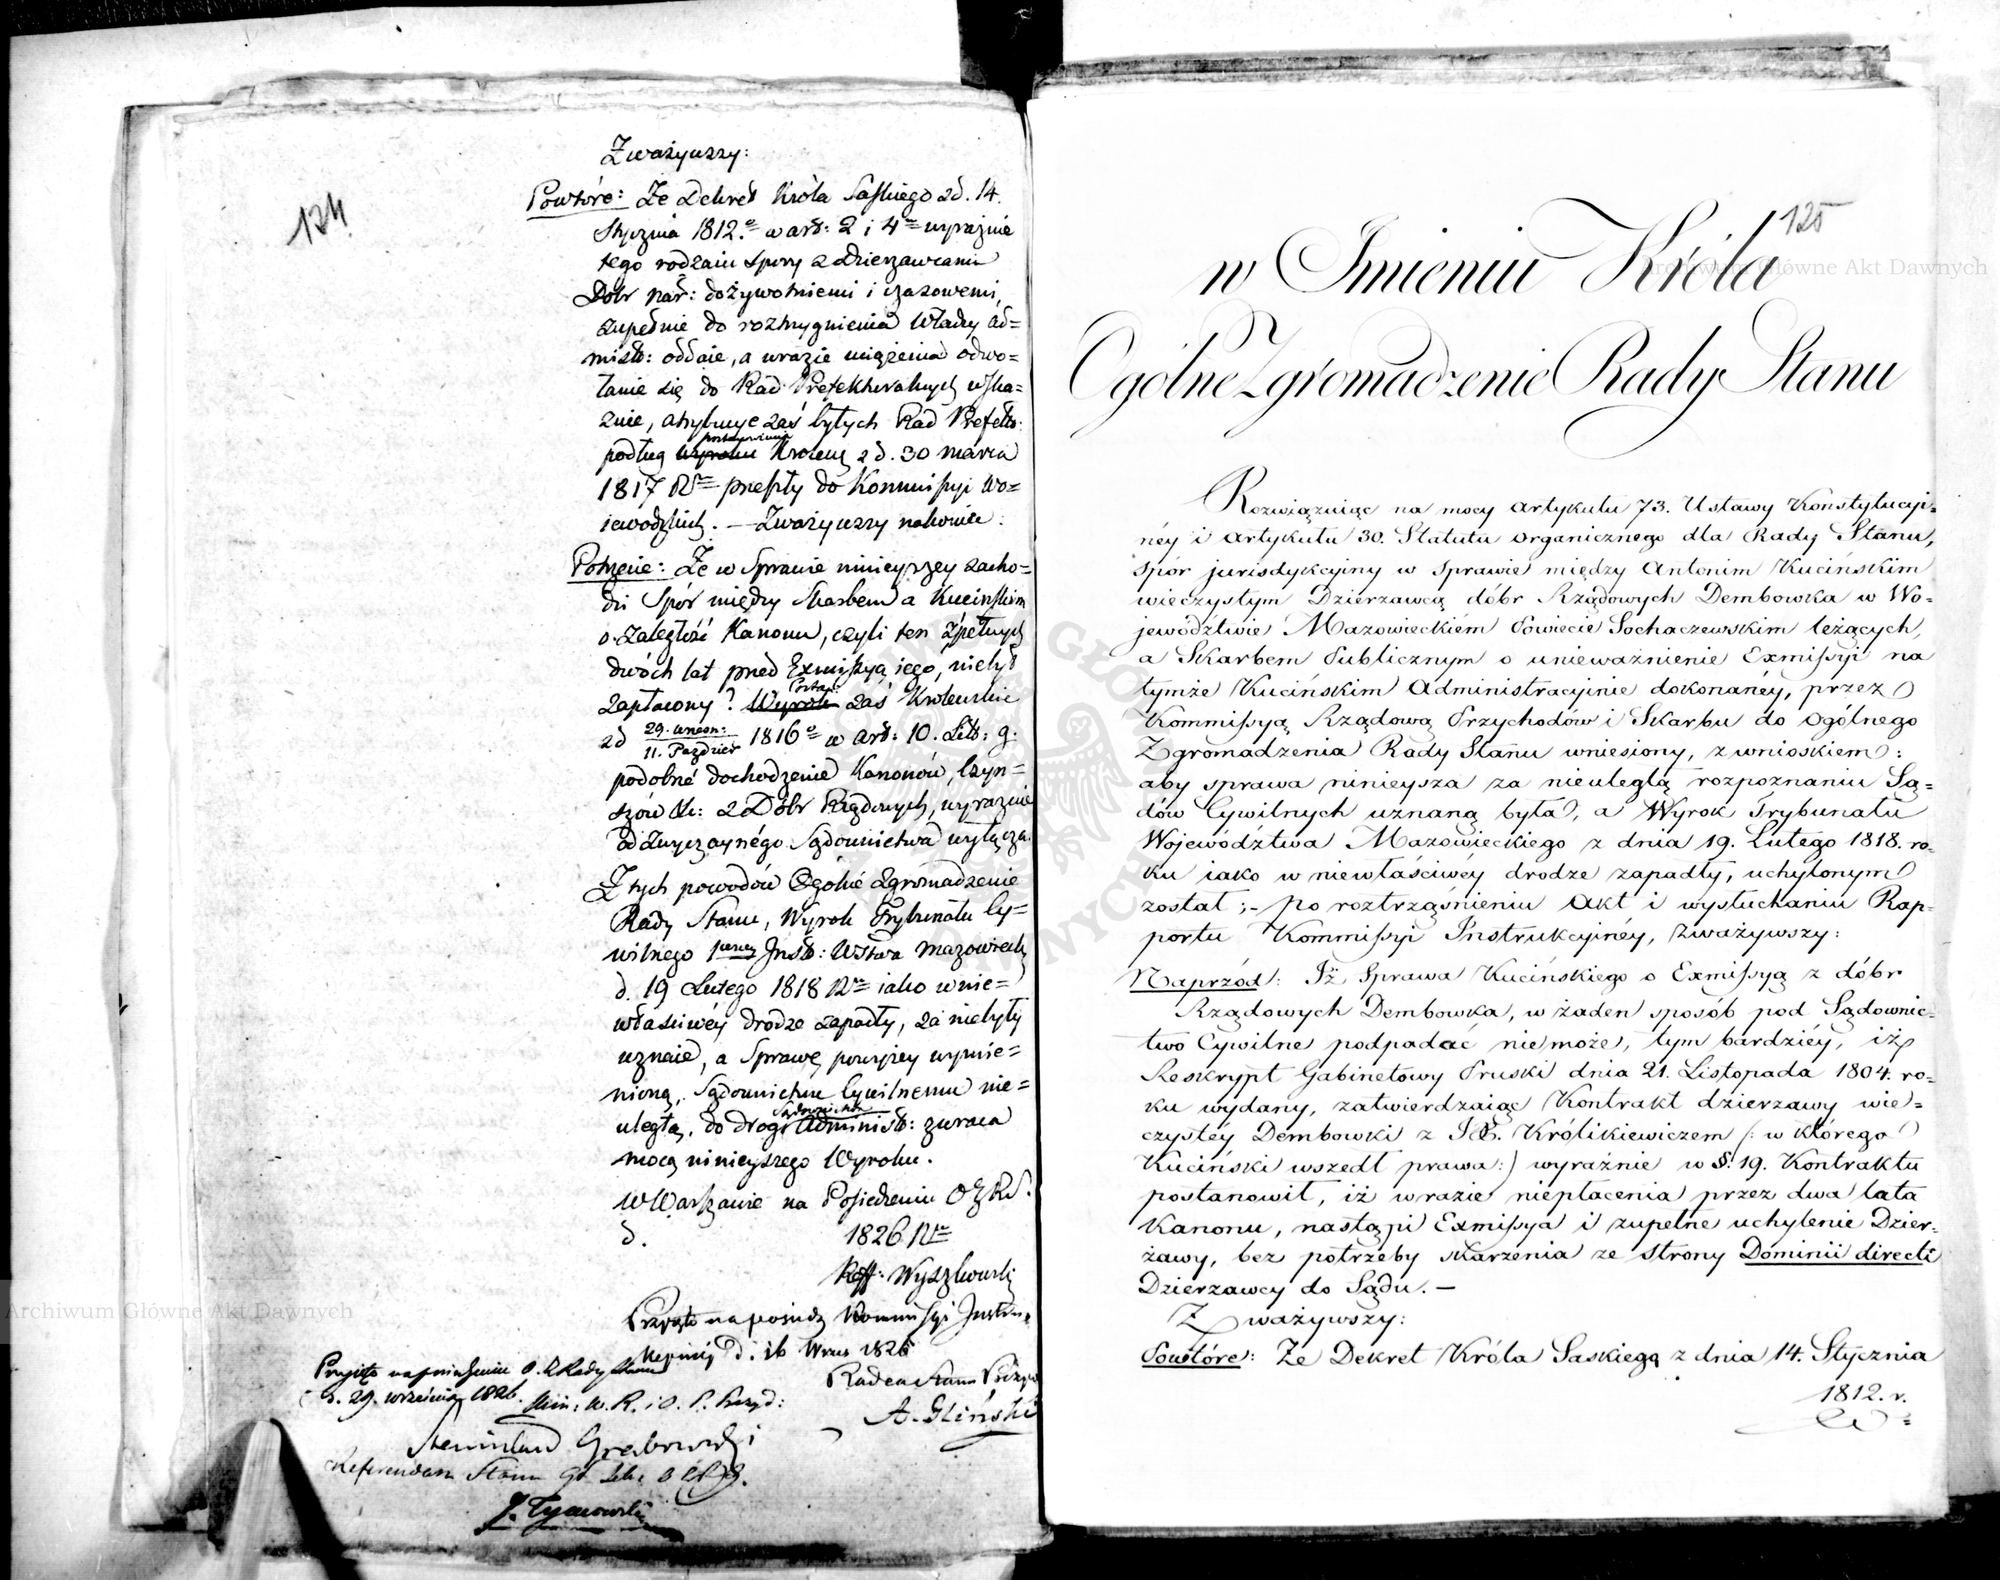 124
Zważywszy:
Powtóre: Że Dekret Króla Saskiego z d. 14.
Stycznia 1812. w art: 2 i 4 wyraźnie
tego rodzaiu spory z Dzierzawcami
Dóbr nar: dożywotniemi i czasowemi,
zupełnie do rozstrzygnienia Władzy Ad=
mistr: oddaie, a wrazie uciążenia odwo=
łanie się do Rad Prefekturalnych wska=
zuie, atrybucye zaś byłych Rad Prefekt:
podług postanowienia Królews z d. 30 marca
1817 R przeszły do Kommissyi Wo=
iewodzkich. — Zważywszy nakoniec:
Potrzecie: Że w Sprawie ninieyszey zacho=
dzi Spór między Skarbem a Kucińskim
o zaległość Kanonu, czyli ten zpełnych
dwóch lat przed Exmissyą iego, niebył
zapłacony? Wyrok Postan: zaś Królewskie
zd 29. wrześn: / 11. Paździer 1816 w art: 10. Litt: g.
podobné dochodzenie Kanonów, Czyn=
szów &c: z Dóbr Rządowych, wyraźnie
od zwyczaynégo Sądownictwa wyłącza.
Z tych powodów Ogólné Zgromadzenie
Rady Stanu, Wyrok Trybunału Cy=
wilnego 1 Inst: Wdztwa Mazowieck
d. 19 Lutego 1818 R iako wnie=
właściwéy drodze zapadły, za niebyły
uznaie, a Sprawę powyżey wymie=
nioną, Sądownictwu Cywilnemu nie=
uległą, do drogi Sądownictwa Administr: zwraca
mocą ninieyszego Wyroku.
w Warszawie na Posiedzeniu OZRS.
d. 1826 R
Reff: Wyszkowski
Przyięto na posiedz Kommissyi Instru=
kcyiney d. 16 Wrześ 1826
Radca Stanu Prezyd
A. Gliński
Przyięto na posiedzeniu O. Z Rady Stanu
d. 29. września 1826. Min: W. R. i O. P. Prezyd:
Stanisław Grabowski
Referendarz Stanu
J. Tymowski
125
w Imieniu Króla
Ogólne Zgromadzenie Rady Stanu
Rozwiązuiąc na mocy Artykułu 73. Ustawy Konstytucyi=
néy i Artykułu 30. Statutu Organicznego dla Rady Stanu,
spór jurisdykcyiny w sprawie między Antonim Kucińskim
wieczystym Dzierzawcą dóbr Rządowych Dembowka w Wo=
jewództwie Mazowieckiem Powiecie Sochaczewskim leżących,
a Skarbem Publicznym o unieważnienie Exmissyi na
tymże Kucińskim Administracyinie dokonanéy, przez
Kommissyą Rządową Przychodów i Skarbu do Ogólnego
Zgromadzenia Rady Stanu wniesiony, z wnioskiem:
aby sprawa ninieysza za nieuległą rozpoznaniu Są=
dów Cywilnych uznaną była, a Wyrok Trybunału
Województwa Mazowieckiego z dnia 19. Lutego 1818. ro=
ku iako w niewłaściwéy drodze zapadły, uchylonym
został ;- po roztrząśnieniu Akt i wysłuchaniu Rap=
portu Kommissyi Instrukcyinéy, Zważywszy:
Naprzód: Iż Sprawa Kucińskiego o Exmissyą z dóbr
Rządowych Dembowka, w żaden sposób pod Sądownic=
two Cywilne podpadać niemoże, tym bardziéy, iż
Reskrypt Gabinetowy Pruski dnia 21. Listopada 1804. ro=
ku wydany, zatwierdzaiąc Kontrakt dzierzawy wie=
czystéy Dembowki z JP. Królikiewiczem /: w którego
Kuciński wszedł prawa:) wyraźnie w §. 19. Kontraktu
postanowił, iż w razie niepłacenia przez dwa lata
Kanonu, nastąpi Exmissya i zupełne uchylenie Dzier=
żawy, bez potrzeby skarzenia ze strony Dominii directi
Dzierzawcy do Sądu. —
Zważywszy:
Powtóre: Że Dekret Króla Saskiego z dnia 14. Stycznia
1812. r.
Archiwum Główne Akt Dawnych
Archiwum Główne Akt Dawnych